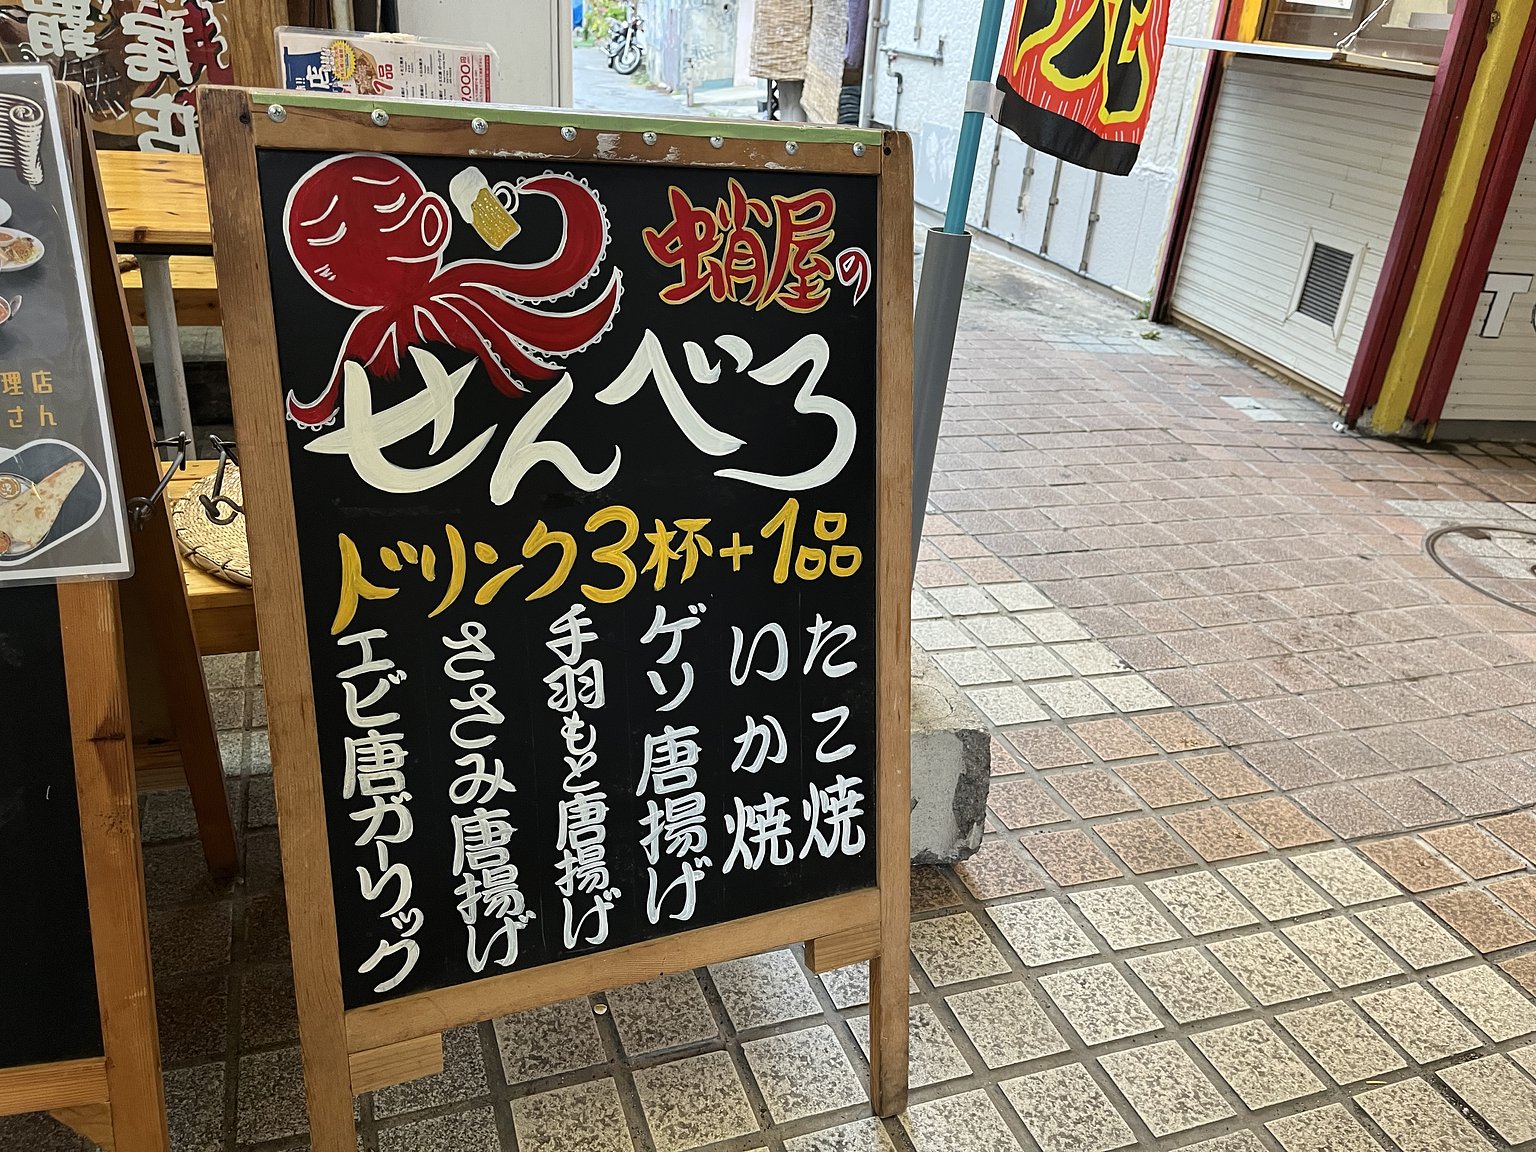 蛸屋の
せんべろ
ドリンク3杯+1品
たこ焼
いか焼
ゲソ唐揚げ
手羽もと唐揚げ
ささみ唐揚げ
エビ唐ガーリック
理店
さん
店
1品
1,000円